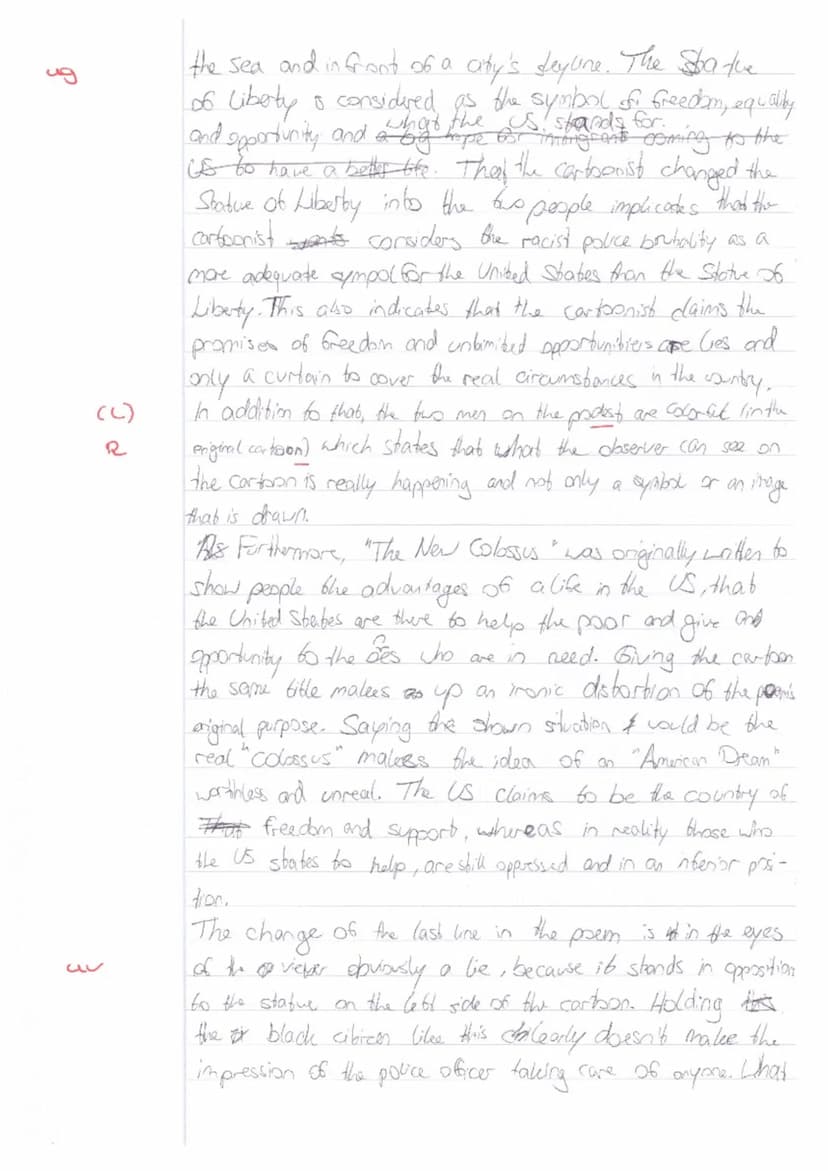 ug
the sea and in front of a city's skyline. The Statue
of Liberty is considered as the symbol of freedom, equality
what the US stands for.
and opportunity and a big hope for immigrants coming to the
US to have a better life. That the cartoonist changed the
Statue of Liberty into the two people implicates that the
cartoonist wants considers the racist police brutality as a
more adequate sympol for the United States than the Statue of
Liberty. This also indicates that the cartoonist claims the
promises of freedom and unlimited opportunitiers are lies and
only a curtain to cover the real circumstances in the country.
(L) In addition to that, the two men on the podest are colorful (in the
R original cartoon) which states that what the observer can see on
the cartoon is really happening and not only a symbol or an image
that is drawn.
Furthermore, "The New Colossus" was originally written to
show people the advantages of a life in the US, that
the United States are there to help the poor and give and
opportunity to the who are in need. Giving the cartoon
the same title makes up an ironic distortion of the poem's
original purpose. Saying the shown situation would be the
real "Colossus" makes the idea of an "American Dream"
worthless and unreal. The US claims to be the country of
That freedom and support, whereas in reality those who
the US states to help, are still oppressed and in an inferior posi-
tion.
The change of the last line in the poem is in the eyes
uv of the viewer obviously a lie, because it stands in opposition
to the statue on the left side of the cartoon. Holding
the black citizen like this clearly doesn't make the
impression of the police officer taking care of anyone. What